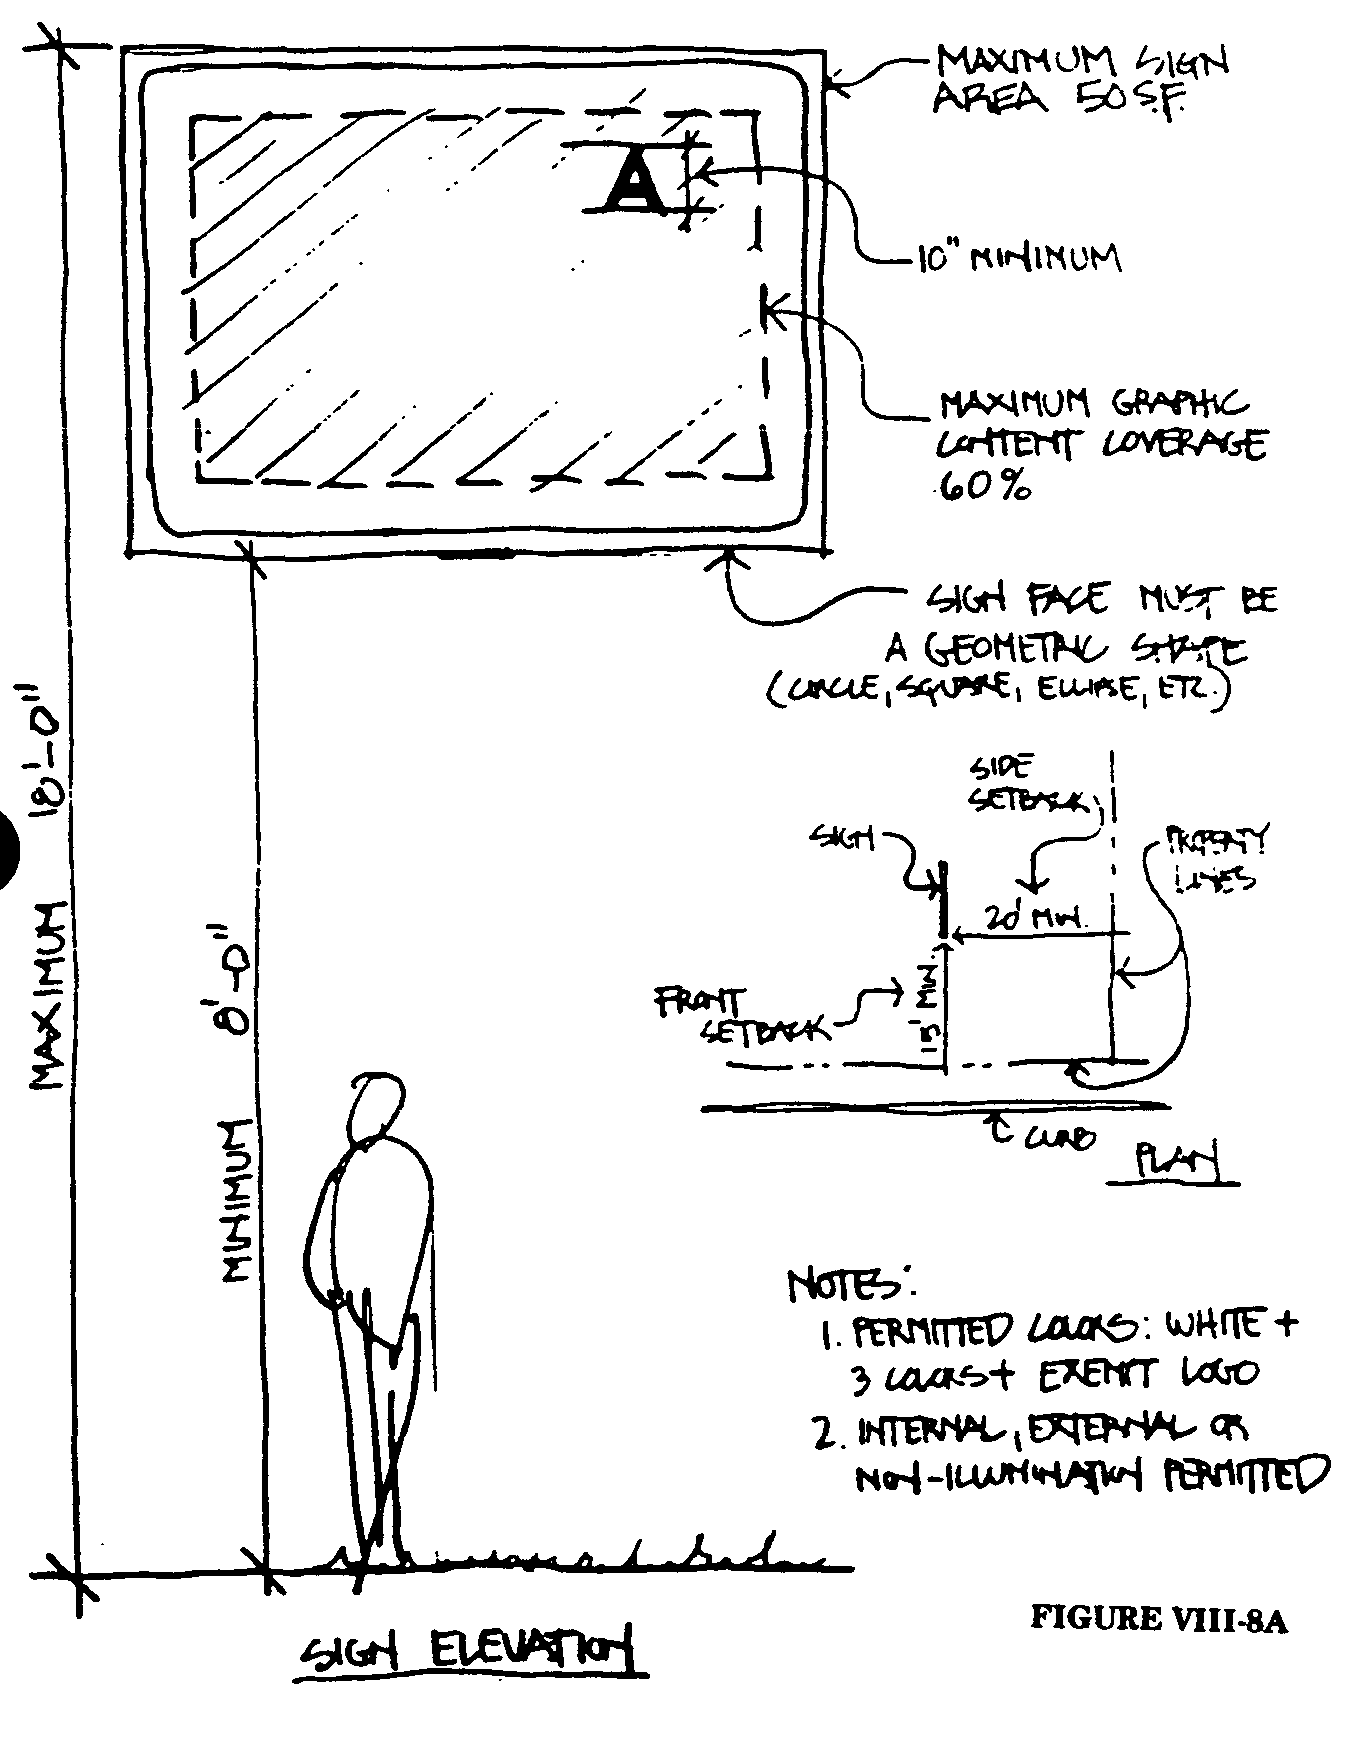 MAXIMUM SIGN
AREA 50 S.F.
A
10" MINIMUM
MAXIMUM GRAPHIC
CONTENT COVERAGE
60%
SIGN FACE MUST BE
A GEOMETRIC SHAPE
(CIRCLE, SQUARE, ELLIPSE, ETC.)
MAXIMUM 18'-0"
MINIMUM 8'-0"
SIDE
SETBACK
SIGN
PROPERTY
LINES
20' MIN.
FRONT
SETBACK
15' MIN.
CURB
PLAN
NOTES:
1. PERMITTED COLORS: WHITE +
3 COLORS + EXEMPT LOGO
2. INTERNAL, EXTERNAL OR
NON-ILLUMINATION PERMITTED
FIGURE VIII-8A
SIGN ELEVATION